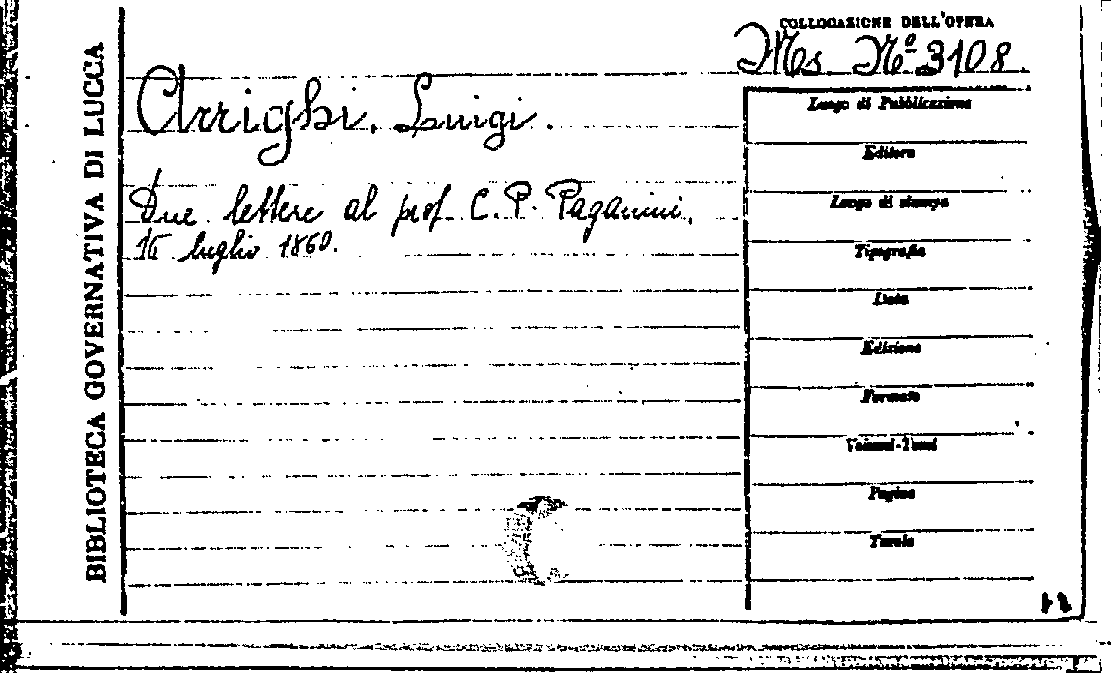 BIBLIOTECA GOVERNATIVA DI LUCCA
COLLOCAZIONE DELL'OPERA
Ms. Nº 3108.
Arrighi, Luigi.
Due lettere al prof. C. P. Paganini.
16 luglio 1860.
Luogo di Pubblicazione
Editore
Luogo di stampa
Tipografia
Data
Edizione
Formato
Volumi-Tomi
Pagine
Tavole